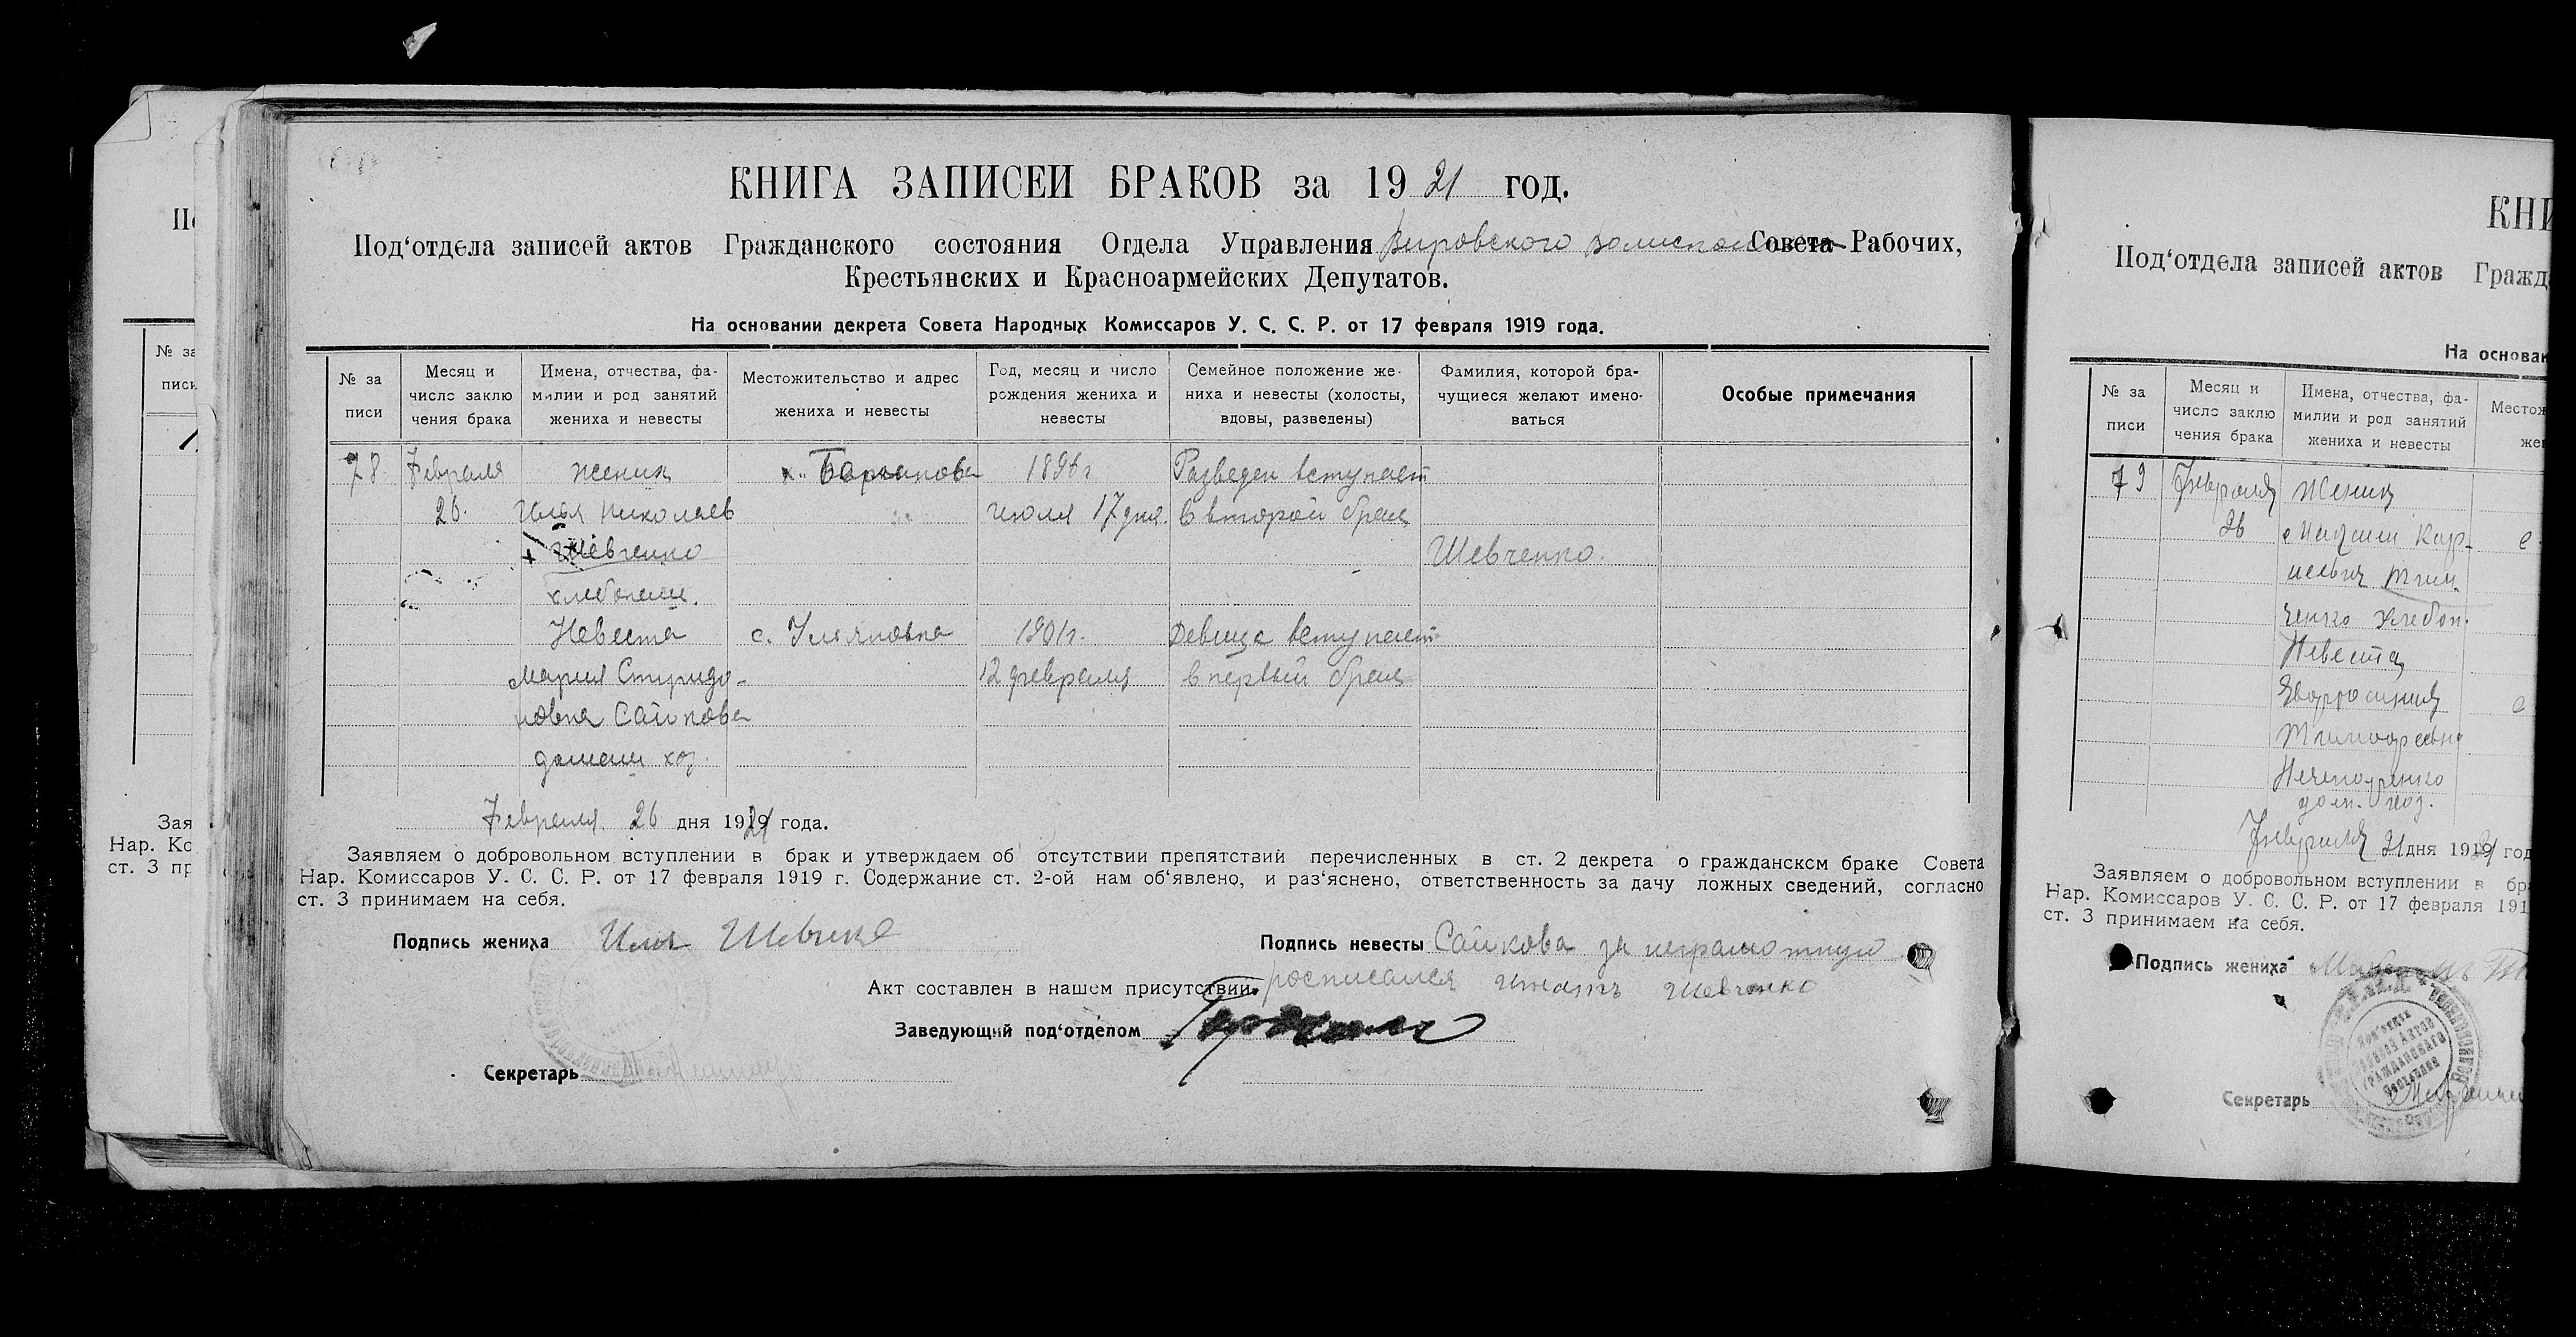 КНИГА ЗАПИСЕЙ БРАКОВ за 1921 год.
Под‘отдела записей актов Гражданского состояния Отдела Управления Вировского Совета Рабочих,
Крестьянских и Красноармейских Депутатов.
На основании декрета Совета Народных Комиссаров У. С. С. Р. от 17 февраля 1919 года.
№ за писи
Месяц и число заклю чения брака
Имена, отчества, фа- милии и род занятий жениха и невесты
Местожительство и адрес жениха и невесты
Год, месяц и число рождения жениха и невесты
Семейное положение же- ниха и невесты (холосты, вдовы, разведены)
Фамилия, которой бра- чущиеся желают имено- ваться
Особые примечания
78 Февраля жених 1896 г. Разведен вступает
26. Илья Николаев июля 17 дня. в второй брак
+ Шевченко Шевченко.
хлебопаш.
Невеста с. Ульяновка 1901 г. Девица вступает
Мария Спиридо- 12 февраля в первый брак
новна Сайкова
домаш хоз.
Февраля 26 дня 1921 года.
Заявляем о добровольном вступлении в брак и утверждаем об отсутствии препятствий перечисленных в ст. 2 декрета о гражданском браке Совета
Нар. Комиссаров У. С. С. Р. от 17 февраля 1919 г. Содержание ст. 2-ой нам об‘явлено, и раз‘яснено, ответственность за дачу ложных сведений, согласно
ст. 3 принимаем на себя.
Подпись жениха Илья Шевченко
Подпись невесты Сайкова за неграмотную
росписался Игнатъ Шевченко
Акт составлен в нашем присутствии.
Заведующий под‘отделом
Секретарь
КНИ
Под‘отдела записей актов Гражд
На основан
№ за писи
Месяц и число заклю чения брака
Имена, отчества, фа- милии и род занятий жениха и невесты
Местож
жен
79 Февраля Жених
26
хлебоп.
Невеста
дом. хоз.
Февраля 21 дня 1921 год
Заявляем о добровольном вступлении в бр
Нар. Комиссаров У. С. С. Р. от 17 февраля 191
ст. 3 принимаем на себя.
Подпись жениха
Секретарь
№ за
писи
Зая
Нар. Ко
ст. 3 пр